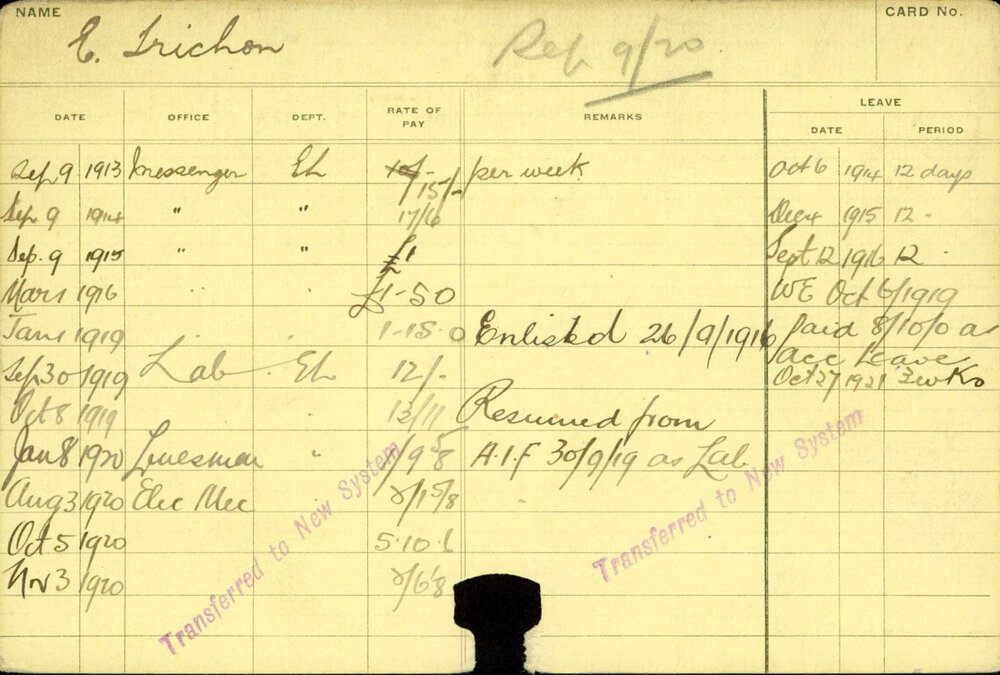 NAME
CARD No.
E. Trichon
Rep. 9/20
DATE OFFICE DEPT. RATE OF PAY REMARKS LEAVE
DATE PERIOD
Sep. 9 1913 Messenger EL 15/- per week Oct 6 1914 12 days
Sep. 9 1914 " " 17/6 Dec 4 1915 12 "
Sep. 9 1915 " " £1 Sept 12 1916 12 "
Mar 1 1916 " " £1-5 0 WE Oct 6/1919
Jan 1 1919 " " 1-15 0 Enlisted 26/9/1916 Paid 8/10/0 a/
acc Leave
Sep 30 1919 Lab. EL 12/- Oct 27 1921 2 wks
Oct 8 1919 " 13/11 Resumed from
Jan 8 1920 Linesman " A.I.F 30/9/19 as Lab
Aug 3 1920 Elec Mec
Oct 5 1920 5.10.6
Nov 3 1920
Transferred to New System
Transferred to New System